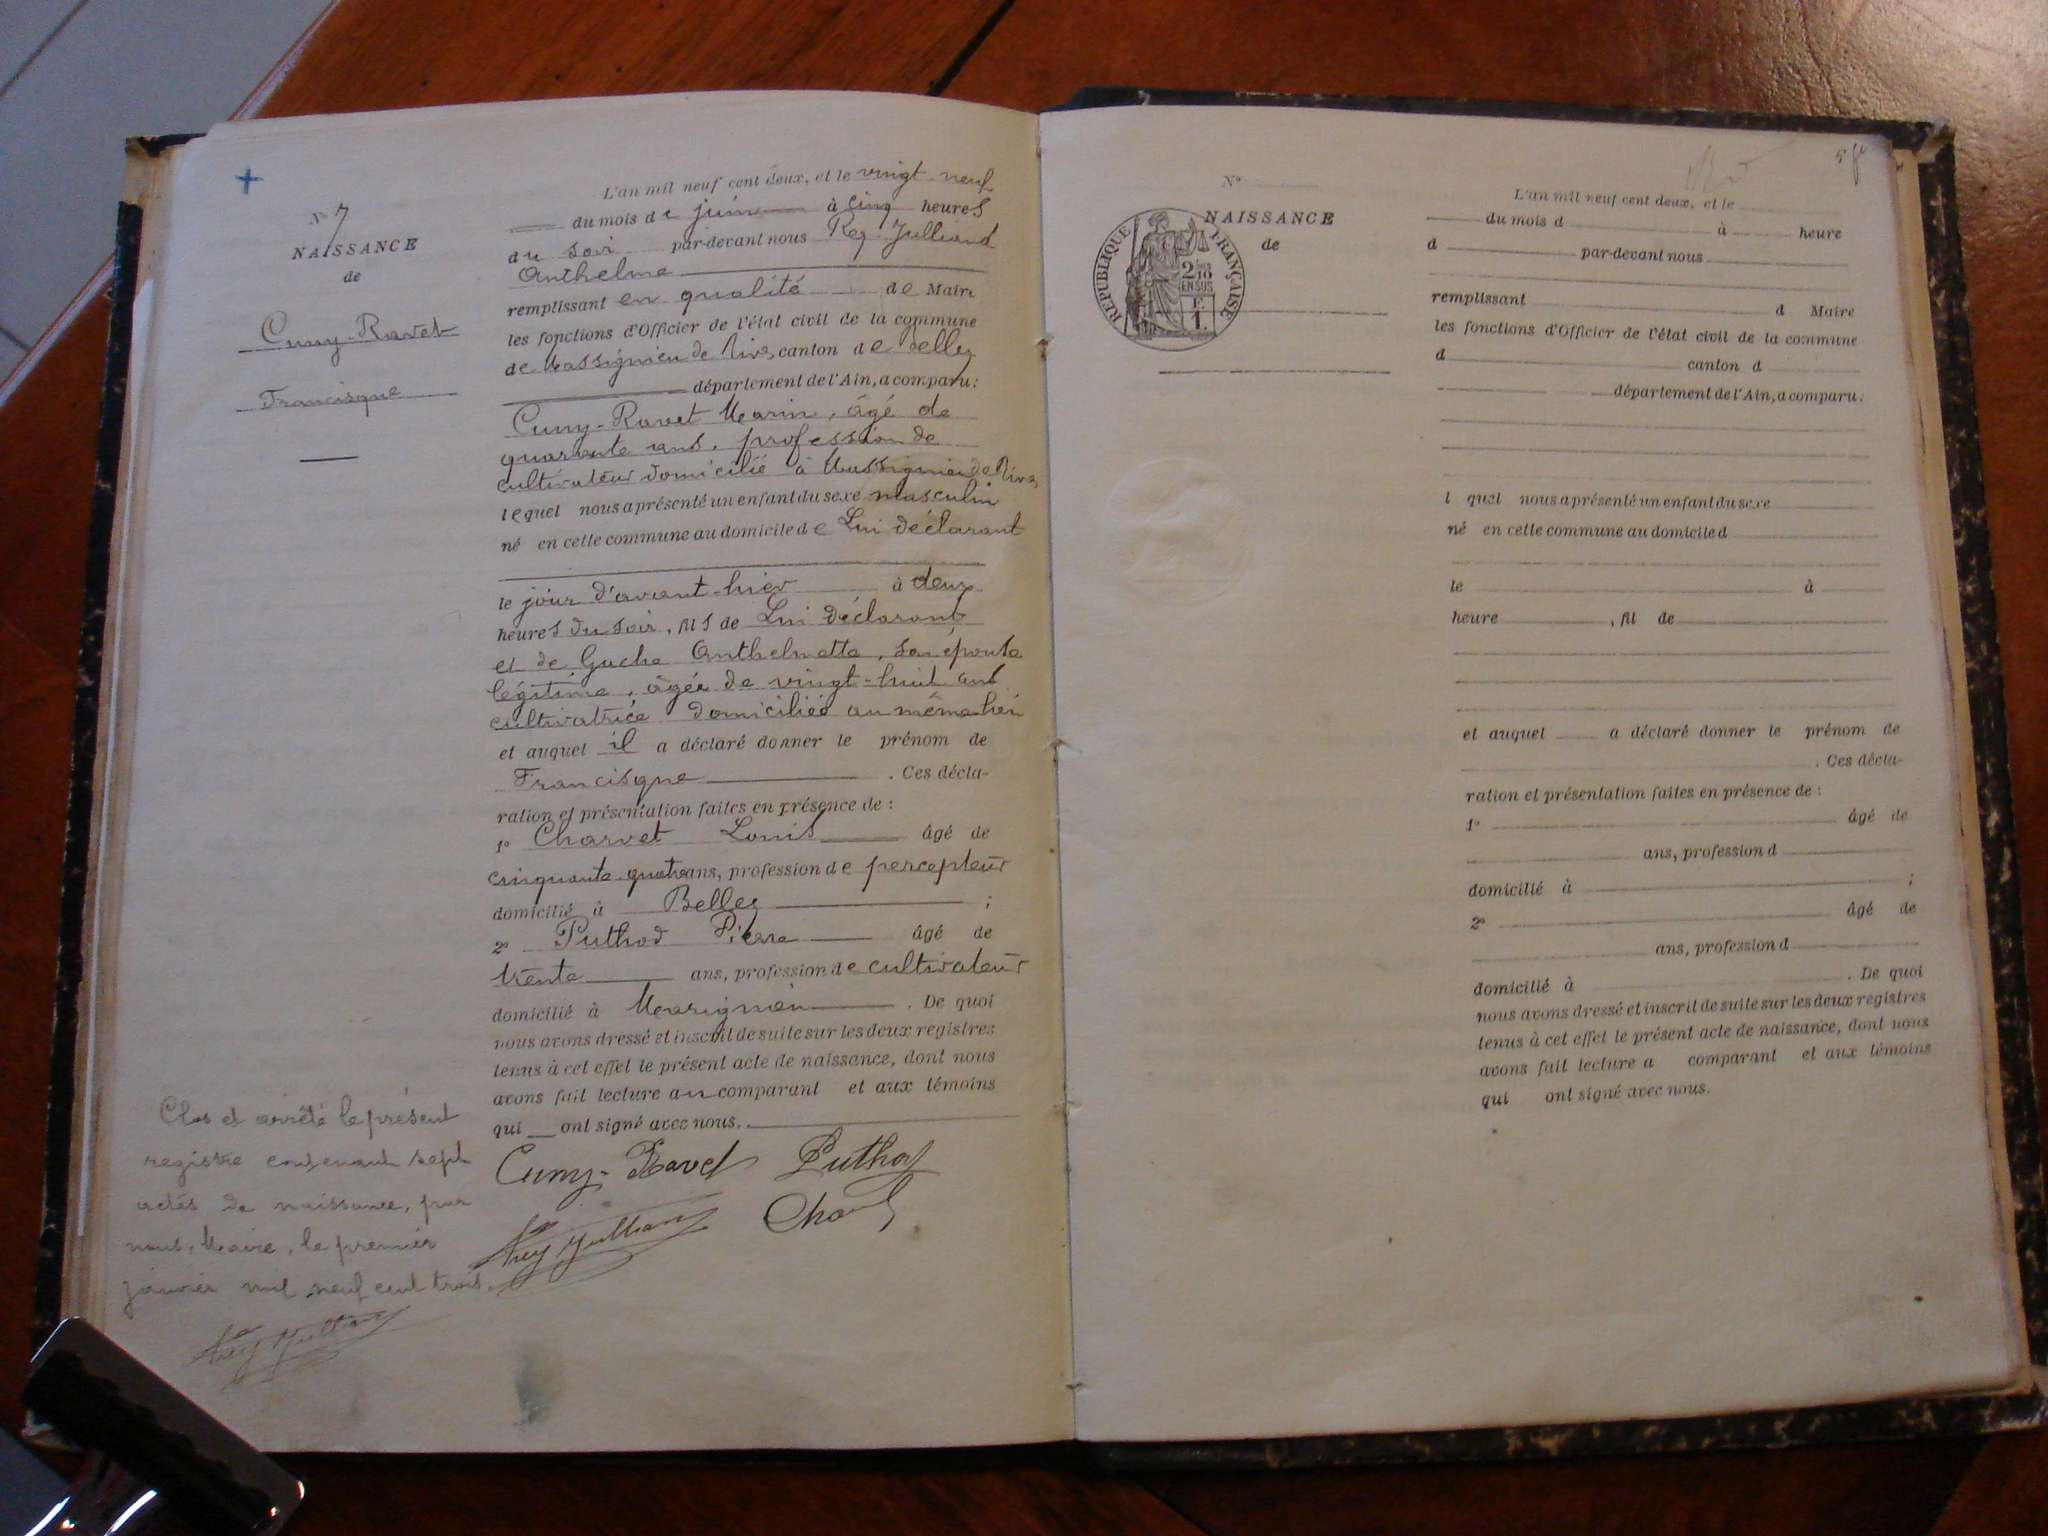 N° 7
NAISSANCE
de
Cuny-Ravet
Francisque
L'an mil neuf cent deux, et le vingt neuf
du mois de juin à cinq heures
du soir par-devant nous Rey Julliand
Anthelme
remplissant en qualité de Maire
les fonctions d'Officier de l'état civil de la commune
de Massignieu de Rives canton de Belley
département de l'Ain, a comparu:
Cuny-Ravet Marin, âgé de
quarante ans, profession de
cultivateur domicilié à Massignieu de Rives
lequel nous a présenté un enfant du sexe masculin
né en cette commune au domicile de Lui déclarant
le jour d'avant-hier à deux
heures du soir, fils de Lui déclarant
et de Guche Anthelmette, son épouse
légitime, âgée de vingt-huit ans
cultivatrice domiciliée au même lieu
et auquel il a déclaré donner le prénom de
Francisque . Ces décla-
ration et présentation faites en présence de :
1° Charvet Louis âgé de
cinquante quatre ans, profession de percepteur
domicilié à Belley ;
2° Puthod Pierre âgé de
trente ans, profession de cultivateur
domicilié à Marignieu . De quoi
nous avons dressé et inscrit de suite sur les deux registres
tenus à cet effet le présent acte de naissance, dont nous
avons fait lecture au comparant et aux témoins
qui ont signé avec nous.
Cuny-Ravet Puthod
Rey Julliand
Clos et arrêté le présent
registre contenant sept
actes de naissance, par
nous, Maire, le premier
janvier mil neuf cent trois.
Rey Julliand
N°
NAISSANCE
de
RÉPUBLIQUE FRANÇAISE
EN SUS
L'an mil neuf cent deux, et le
du mois d à heure
d par-devant nous
remplissant d Maire
les fonctions d'Officier de l'état civil de la commune
d canton d
département de l'Ain, a comparu.
l quel nous a présenté un enfant du sexe
né en cette commune au domicile d
le à
heure , fil de
et auquel a déclaré donner le prénom de
. Ces décla-
ration et présentation faites en présence de :
1° âgé de
ans, profession d
domicilié à ;
2° âgé de
ans, profession d
domicilié à . De quoi
nous avons dressé et inscrit de suite sur les deux registres
tenus à cet effet le présent acte de naissance, dont nous
avons fait lecture a comparant et aux témoins
qui ont signé avec nous.